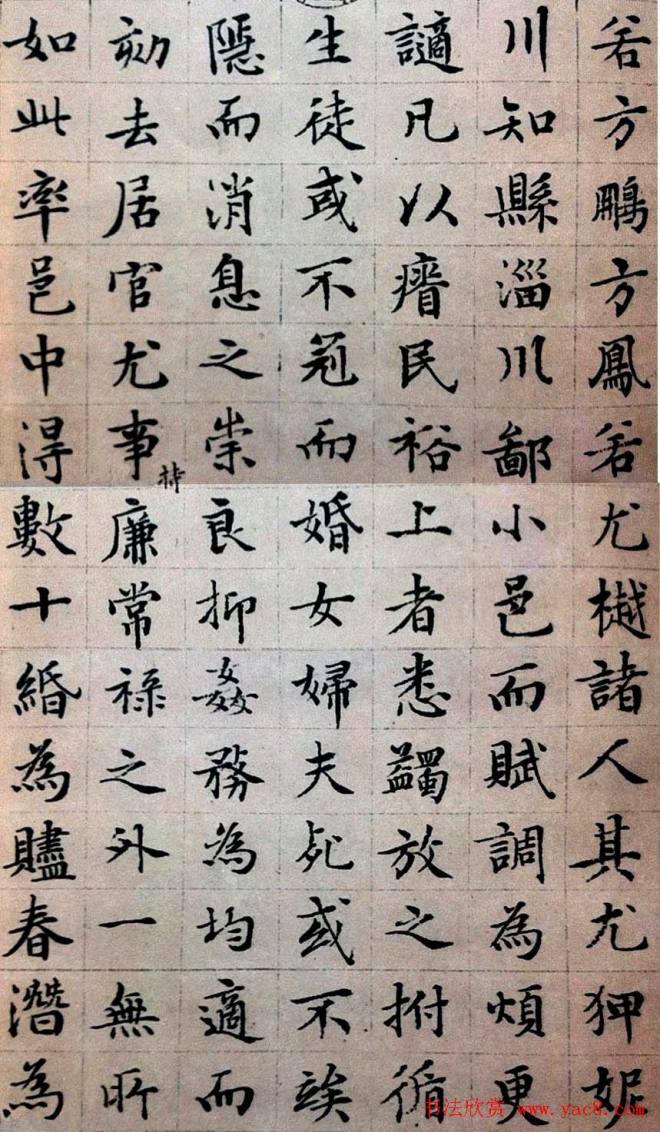 若方鵬方鳳若尤樾諸人其尤狎妮
川知縣淄川鄙小邑而賦調為煩更
謫凡以瘠民裕上者悉蠲放之拊循
生徒或不冠而婚女婦夫死或不竢
隱而消息之崇良抑姦務為均適而
劾去居官尤事持廉常祿之外一無所
如此率邑中得數十緡為贐春潛為
书法欣赏 www.yac8.com